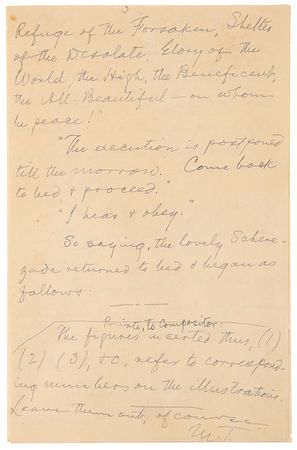 3
Refuge of the Forsaken, Shelter
of the Desolate, Glory of the
World, the High, the Beneficent,
the All-Beautiful — on whom
be peace!"
"The execution is postponed
till the morrow. Come back
to bed, & proceed."
"I hear & obey."
So saying, the lovely Schere-
zade returned to bed & began as
follows:
Private, to compositor:
The figures inserted thus, (1)
(2) (3), &c., refer to correspond-
ing numbers on the illustrations.
Leave them out, of course.
M.T.